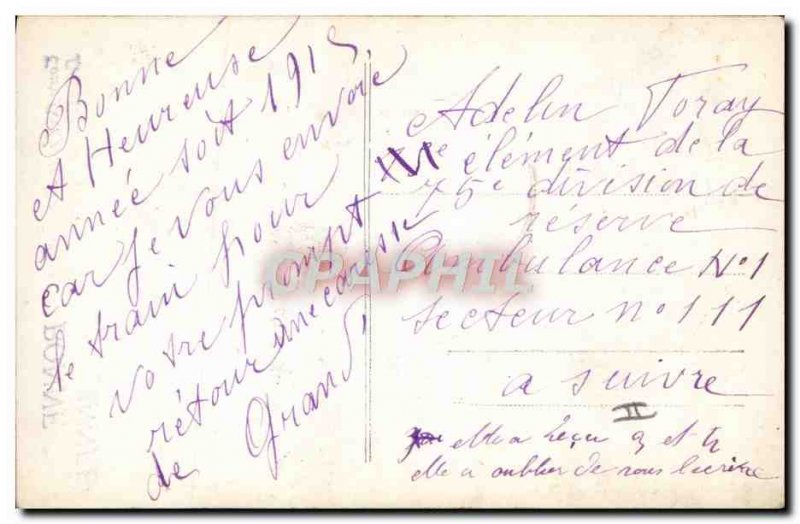 Bonne
et Heureuse
année soit 1915,
car je vous envoie
le train pour
votre prompt
rétour une caisse
de Grand
Adelin Toray
XVI e élément de la
75e division de
réserve
Ambulance No 1
secteur no 111
a suivre
II
elle a reçu et
elle a oublier de nous l'écrire
CPAPHIL